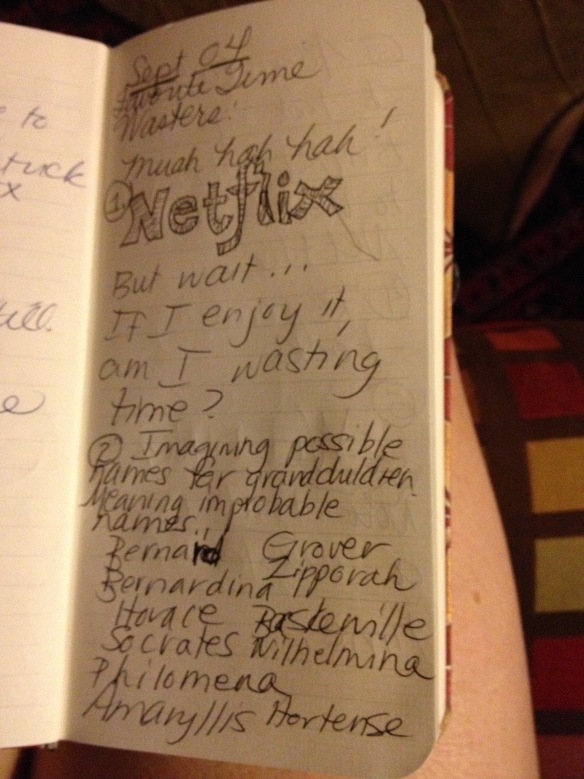 e to
tuck
x
e
Sept 04
Favorite Time
Wasters:
muah hah hah!
① Netflix
But wait...
If I enjoy it,
am I wasting
time?
② Imagining possible
names for grandchildren.
Meaning improbable
names.
Bernard Grover
Bernardina Zipporah
Horace Baskerville
Socrates Wilhelmina
Philomena
Amaryllis Hortense